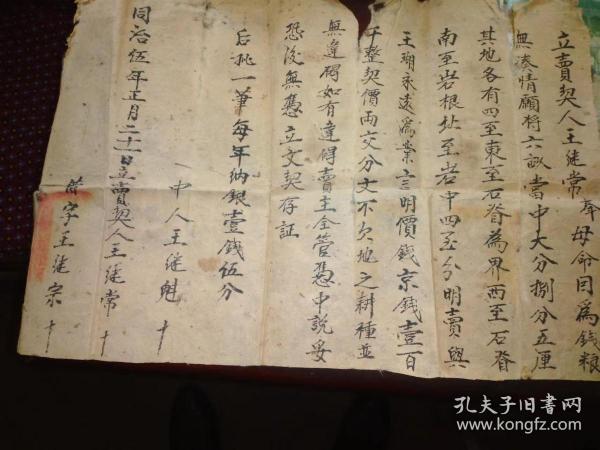 立賣契人王继常奉母命因為錢粮
無湊情願将六畝當中大分捌分五厘
其地各有四至東至石脊為界西至石脊
南至岩根北至岩中四至分明賣與
王瑚永遠為業言明價錢京錢壹百
千整契價両交分文不欠地之耕種並
無違碍如有違碍賣主全管憑中説妥
恐後無憑立文契存証
后批一筆每年納銀壹錢伍分
中人王继魁十
同治伍年正月二十一日立賣契人王继常十
字王继宗十
孔夫子旧书网
www.kongfz.com